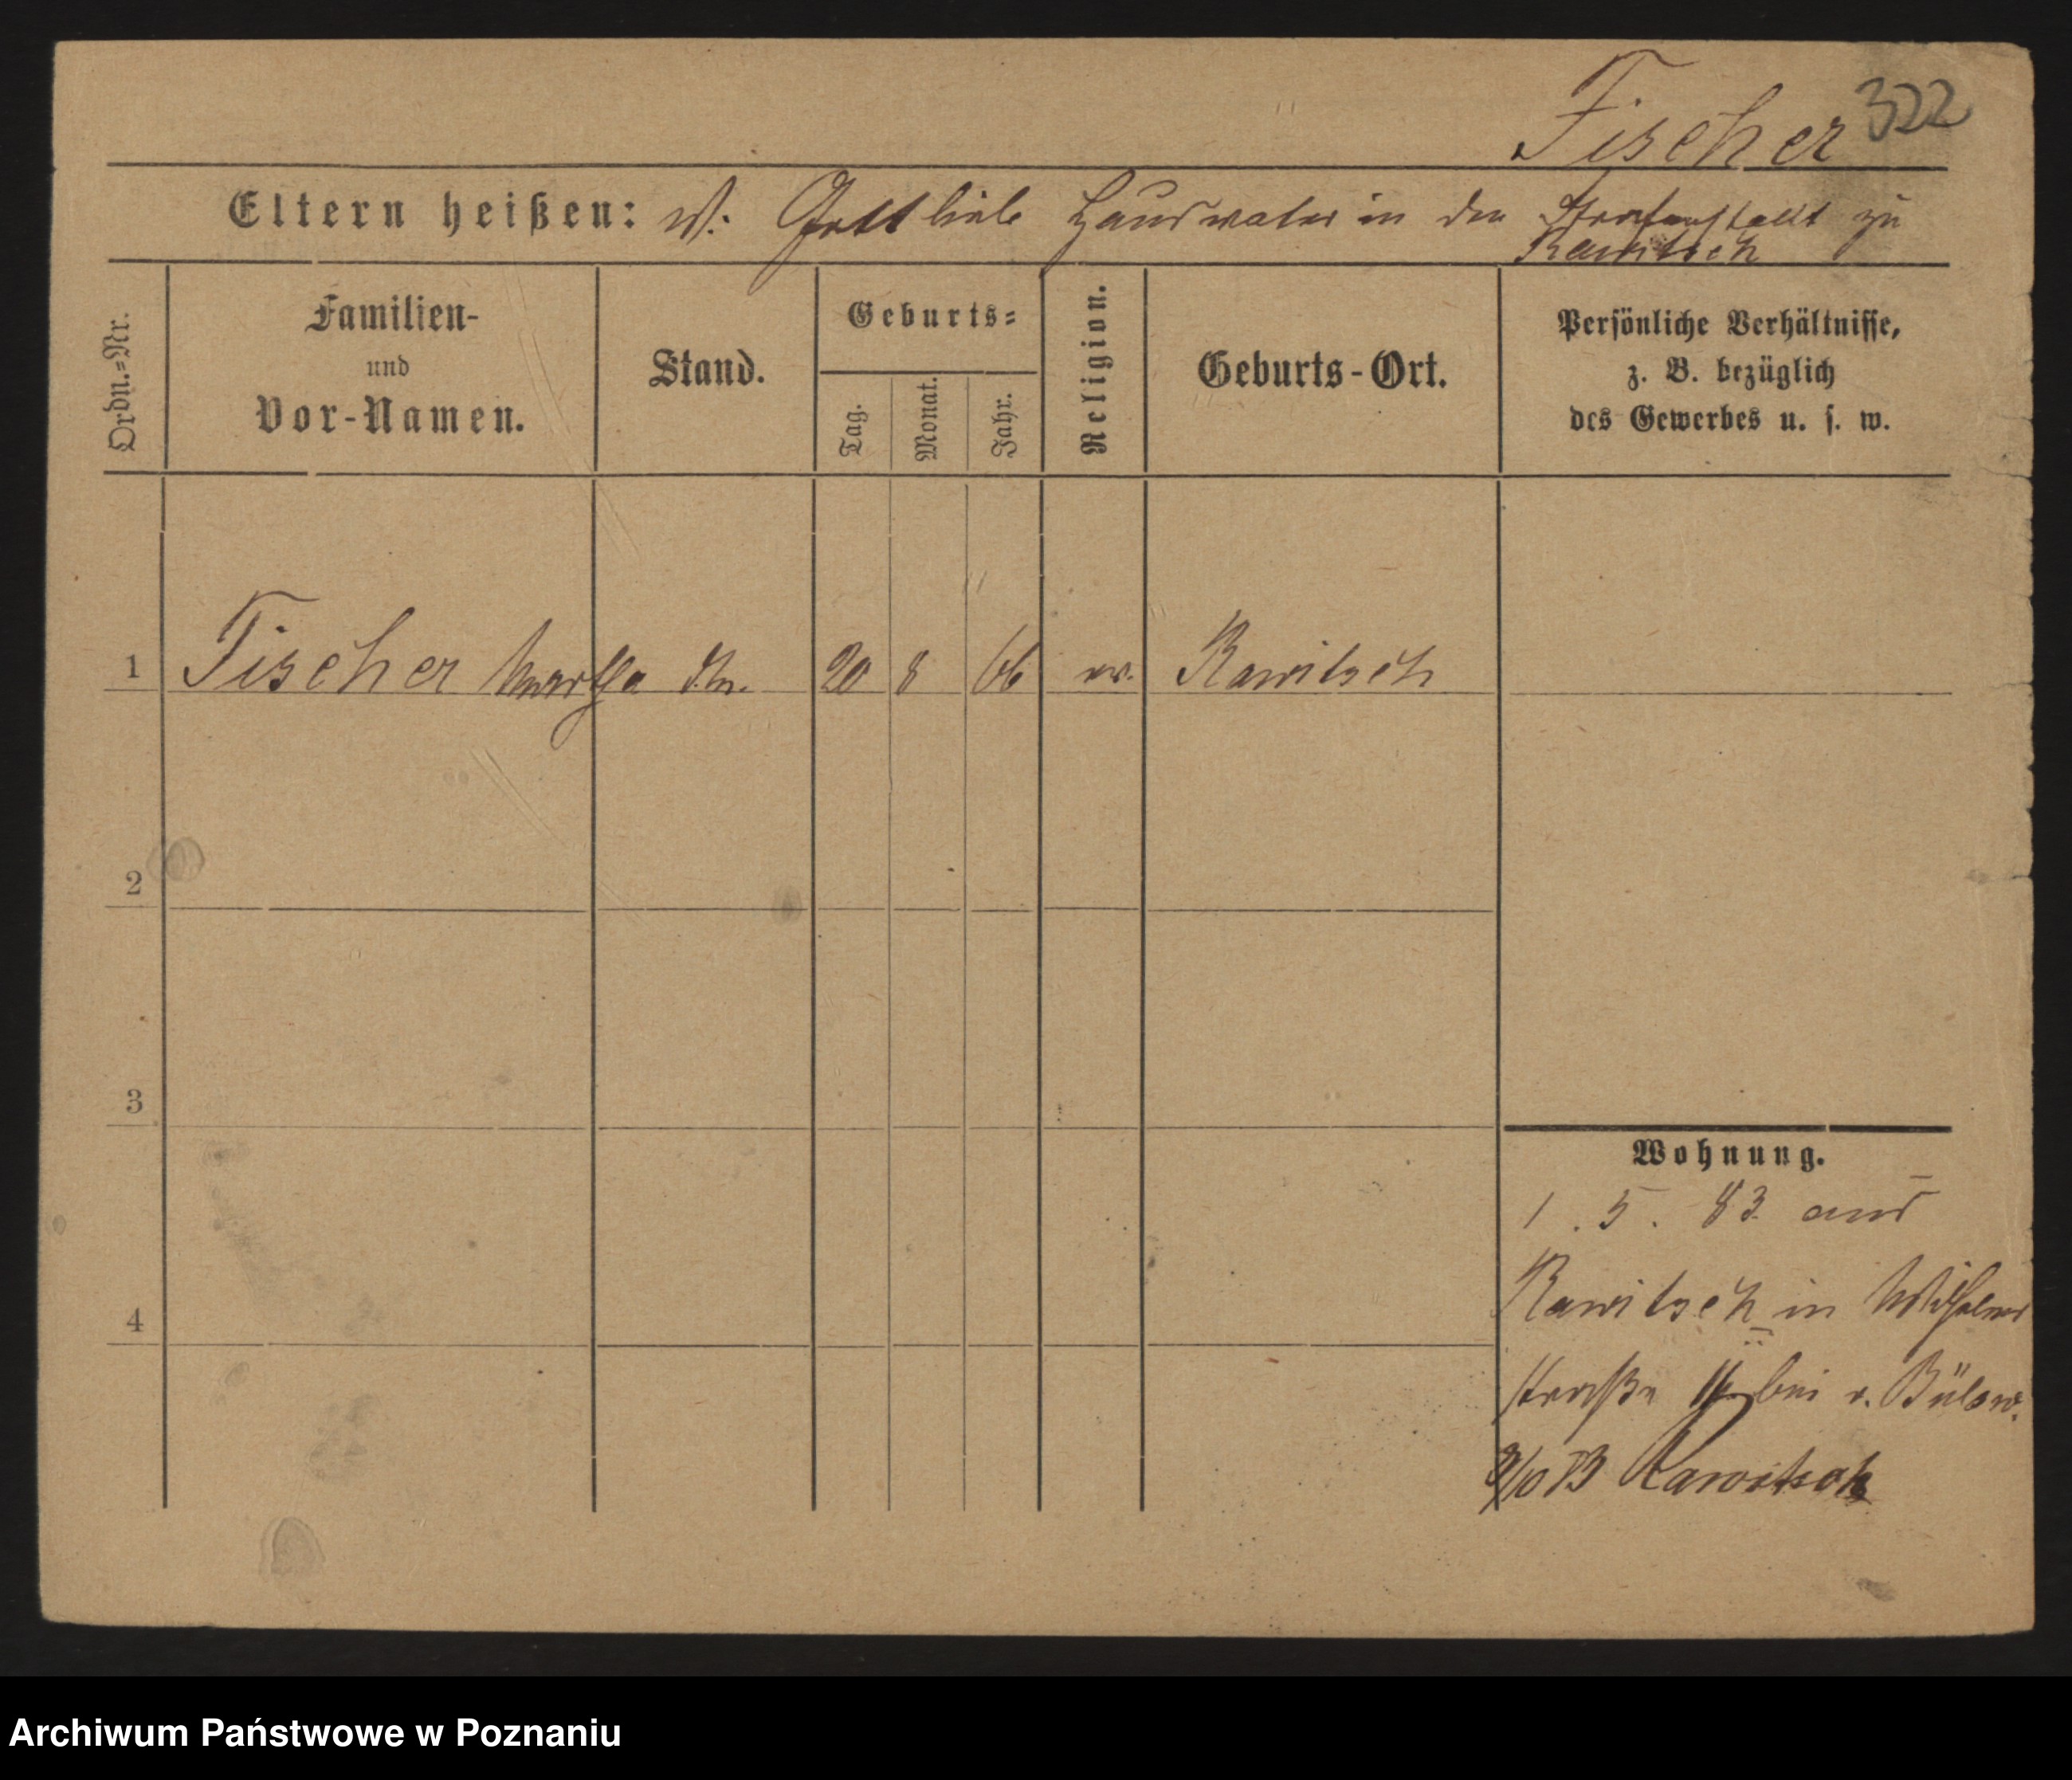 Fischer 322
Eltern heißen: V: Gottlieb Hausvater in der Strafanstalt zu
Rawitsch
Ordn.=Nr.
Familien-
und
Vor-Namen.
Stand.
Geburts=
Tag.
Monat.
Jahr.
Religion.
Geburts-Ort.
Persönliche Verhältnisse,
z. B. bezüglich
des Gewerbes u. s. w.
1 Fischer Martha 20 8 66 ev. Rawitsch
2
3
4
Wohnung.
1. 5. 83 aus
Rawitsch in Wilhelms
straße bei v. Bülow.
Rawitsch
Archiwum Państwowe w Poznaniu